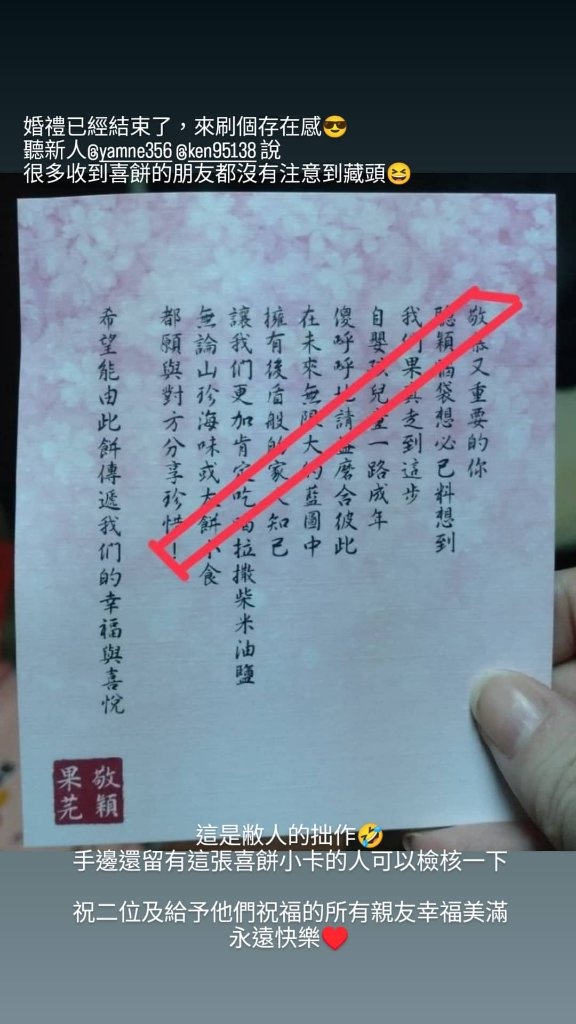 婚禮已經結束了，來刷個存在感😎
聽新人@yamne356 @ken95138 說
很多收到喜餅的朋友都沒有注意到藏頭😆
敬又重要的你
聰穎腦袋想必已料想到
我們果真走到這步
自嬰孩兒童一路成年
傻呼呼地請益磨合彼此
在未來無限大的藍圖中
擁有後盾般的家人知己
讓我們更加肯定吃喝拉撒柴米油鹽
無論山珍海味或大餅小食
都願與對方分享珍惜！
希望能由此餅傳遞我們的幸福與喜悅
敬穎
果芫
這是敝人的拙作🤣
手邊還留有這張喜餅小卡的人可以檢核一下
祝二位及給予他們祝福的所有親友幸福美滿
永遠快樂♥️